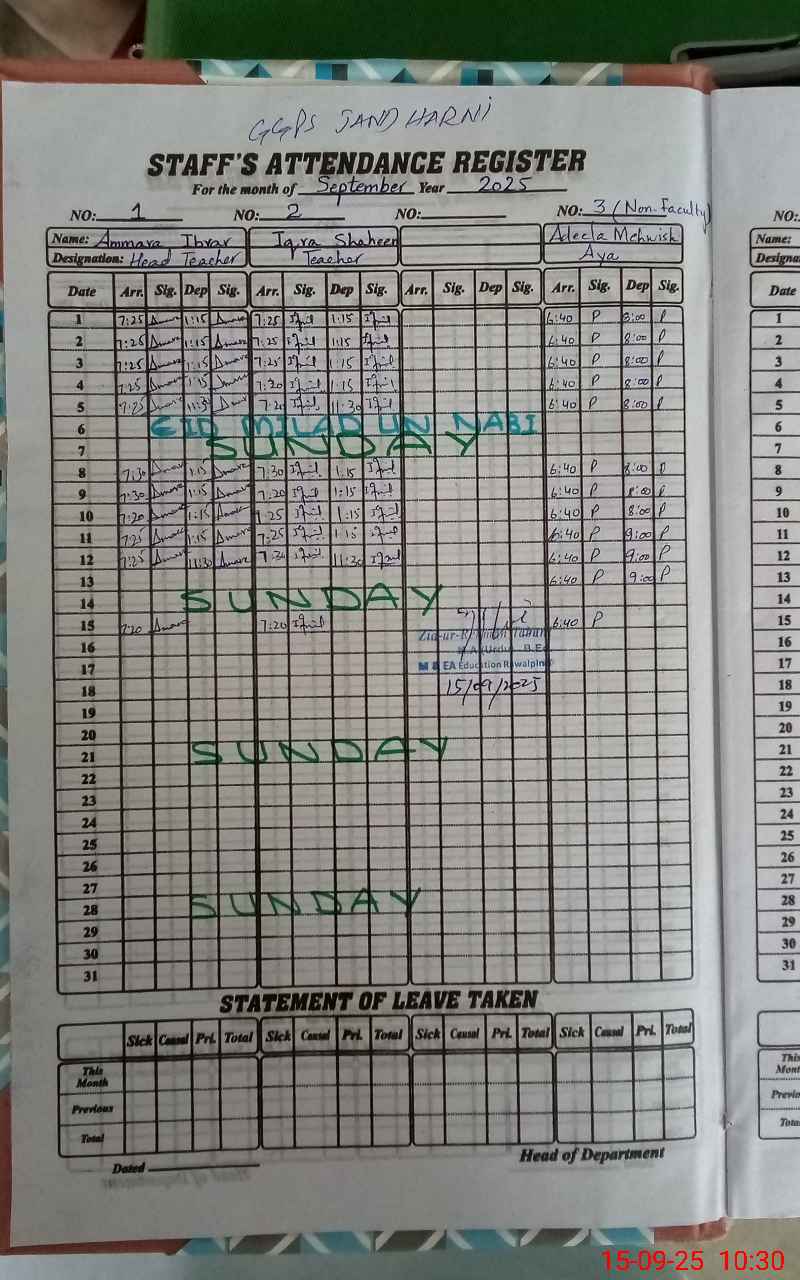 GGPS JANDHARNI
STAFF'S ATTENDANCE REGISTER
For the month of September Year 2025
NO: 1 NO: 2 NO: NO: 3 (Non-Faculty) NO:
Name: Ammara Ibrar Iqra Shaheen Adeela Mehwish Name:
Designation: Head Teacher Teacher Aya Designa
Date Arr. Sig. Dep Sig. Arr. Sig. Dep Sig. Arr. Sig. Dep Sig. Arr. Sig. Dep Sig. Date
1 7:25 1:15 7:25 1:15 6:40 P 8:00 P 1
2 7:25 1:15 7:25 1:15 6:40 P 8:00 P 2
3 7:25 1:15 7:25 1:15 6:40 P 8:00 P 3
4 7:25 1:15 7:20 1:15 6:40 P 8:00 P 4
5 7:25 11:30 7:20 11:30 6:40 P 8:00 P 5
6 EID MILAD UN NABI 6
7 SUNDAY 7
8 7:30 1:15 7:30 1:15 6:40 P 8:00 P 8
9 7:30 1:15 7:20 1:15 6:40 P 8:00 P 9
10 7:20 1:15 7:25 1:15 6:40 P 8:00 P 10
11 7:25 1:15 7:25 1:15 6:40 P 9:00 P 11
12 7:25 11:30 7:30 11:30 6:40 P 9:00 P 12
13 6:40 P 9:00 P 13
14 SUNDAY 14
15 7:20 7:20 6:40 P 15
Zia-ur-Rehman
16 M.A (Urdu) B.Ed 16
17 M & EA Education Rawalpindi 17
18 15/09/2025 18
19 19
20 20
21 SUNDAY 21
22 22
23 23
24 24
25 25
26 26
27 27
28 SUNDAY 28
29 29
30 30
31 31
STATEMENT OF LEAVE TAKEN
Sick Causal Pri. Total Sick Causal Pri. Total Sick Causal Pri. Total Sick Causal Pri. Total
This Month This Mont
Previous Previo
Total Tota
Dated Head of Department
15-09-25 10:30